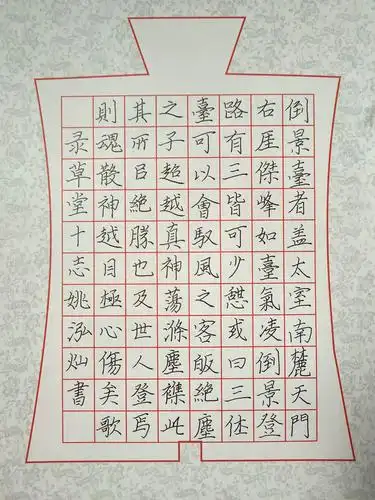 倒景臺者盖太室南麓天門
右厓傑峰如臺氣凌倒景登
路有三皆可少憇或曰三休
臺可以會馭風之客皈絶塵
之子超越真神蕩滌塵襟此
其所㠯絶勝也及世人登焉
則魂散神越目極心傷矣歌
录草堂十志姚泓灿書